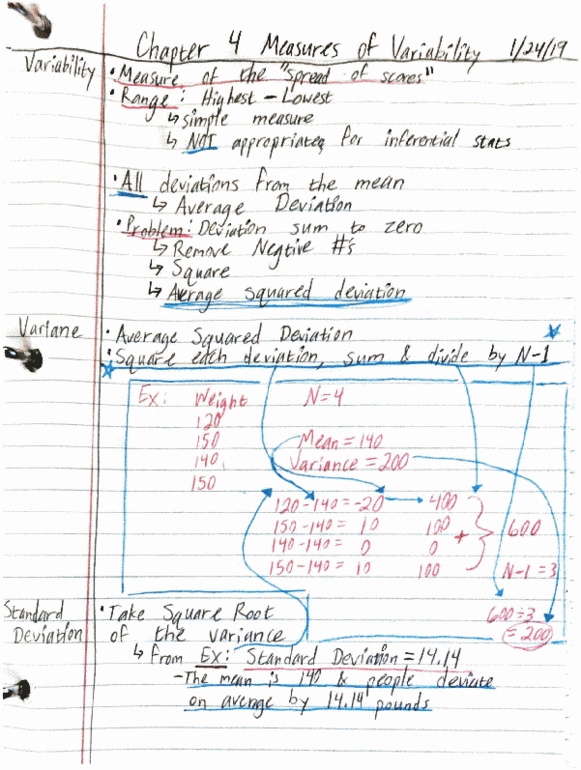 Chapter 4 Measures of Variability 1/24/19
Variability
• Measure of the "spread of scores"
• Range: Highest - Lowest
↳ simple measure
↳ NOT appropriate for inferential stats
• All deviations from the mean
↳ Average Deviation
• Problem: Deviation sum to zero
↳ Remove Negtive #'s
↳ Square
↳ Average squared deviation
Variane
• Average Squared Deviation
• Square each deviation, sum & divide by N-1
Ex: Weight N=4
120
150
140
150
Mean = 140
Variance = 200
120-140 = -20 400
150-140 = 10 100
140-140 = 0 0
150-140 = 10 100
+ 600
N-1 = 3
600÷3
= 200
Standard Deviation
• Take Square Root
of the variance
↳ From Ex: Standard Deviation = 14.14
- The mean is 140 & people deviate
on average by 14.14 pounds